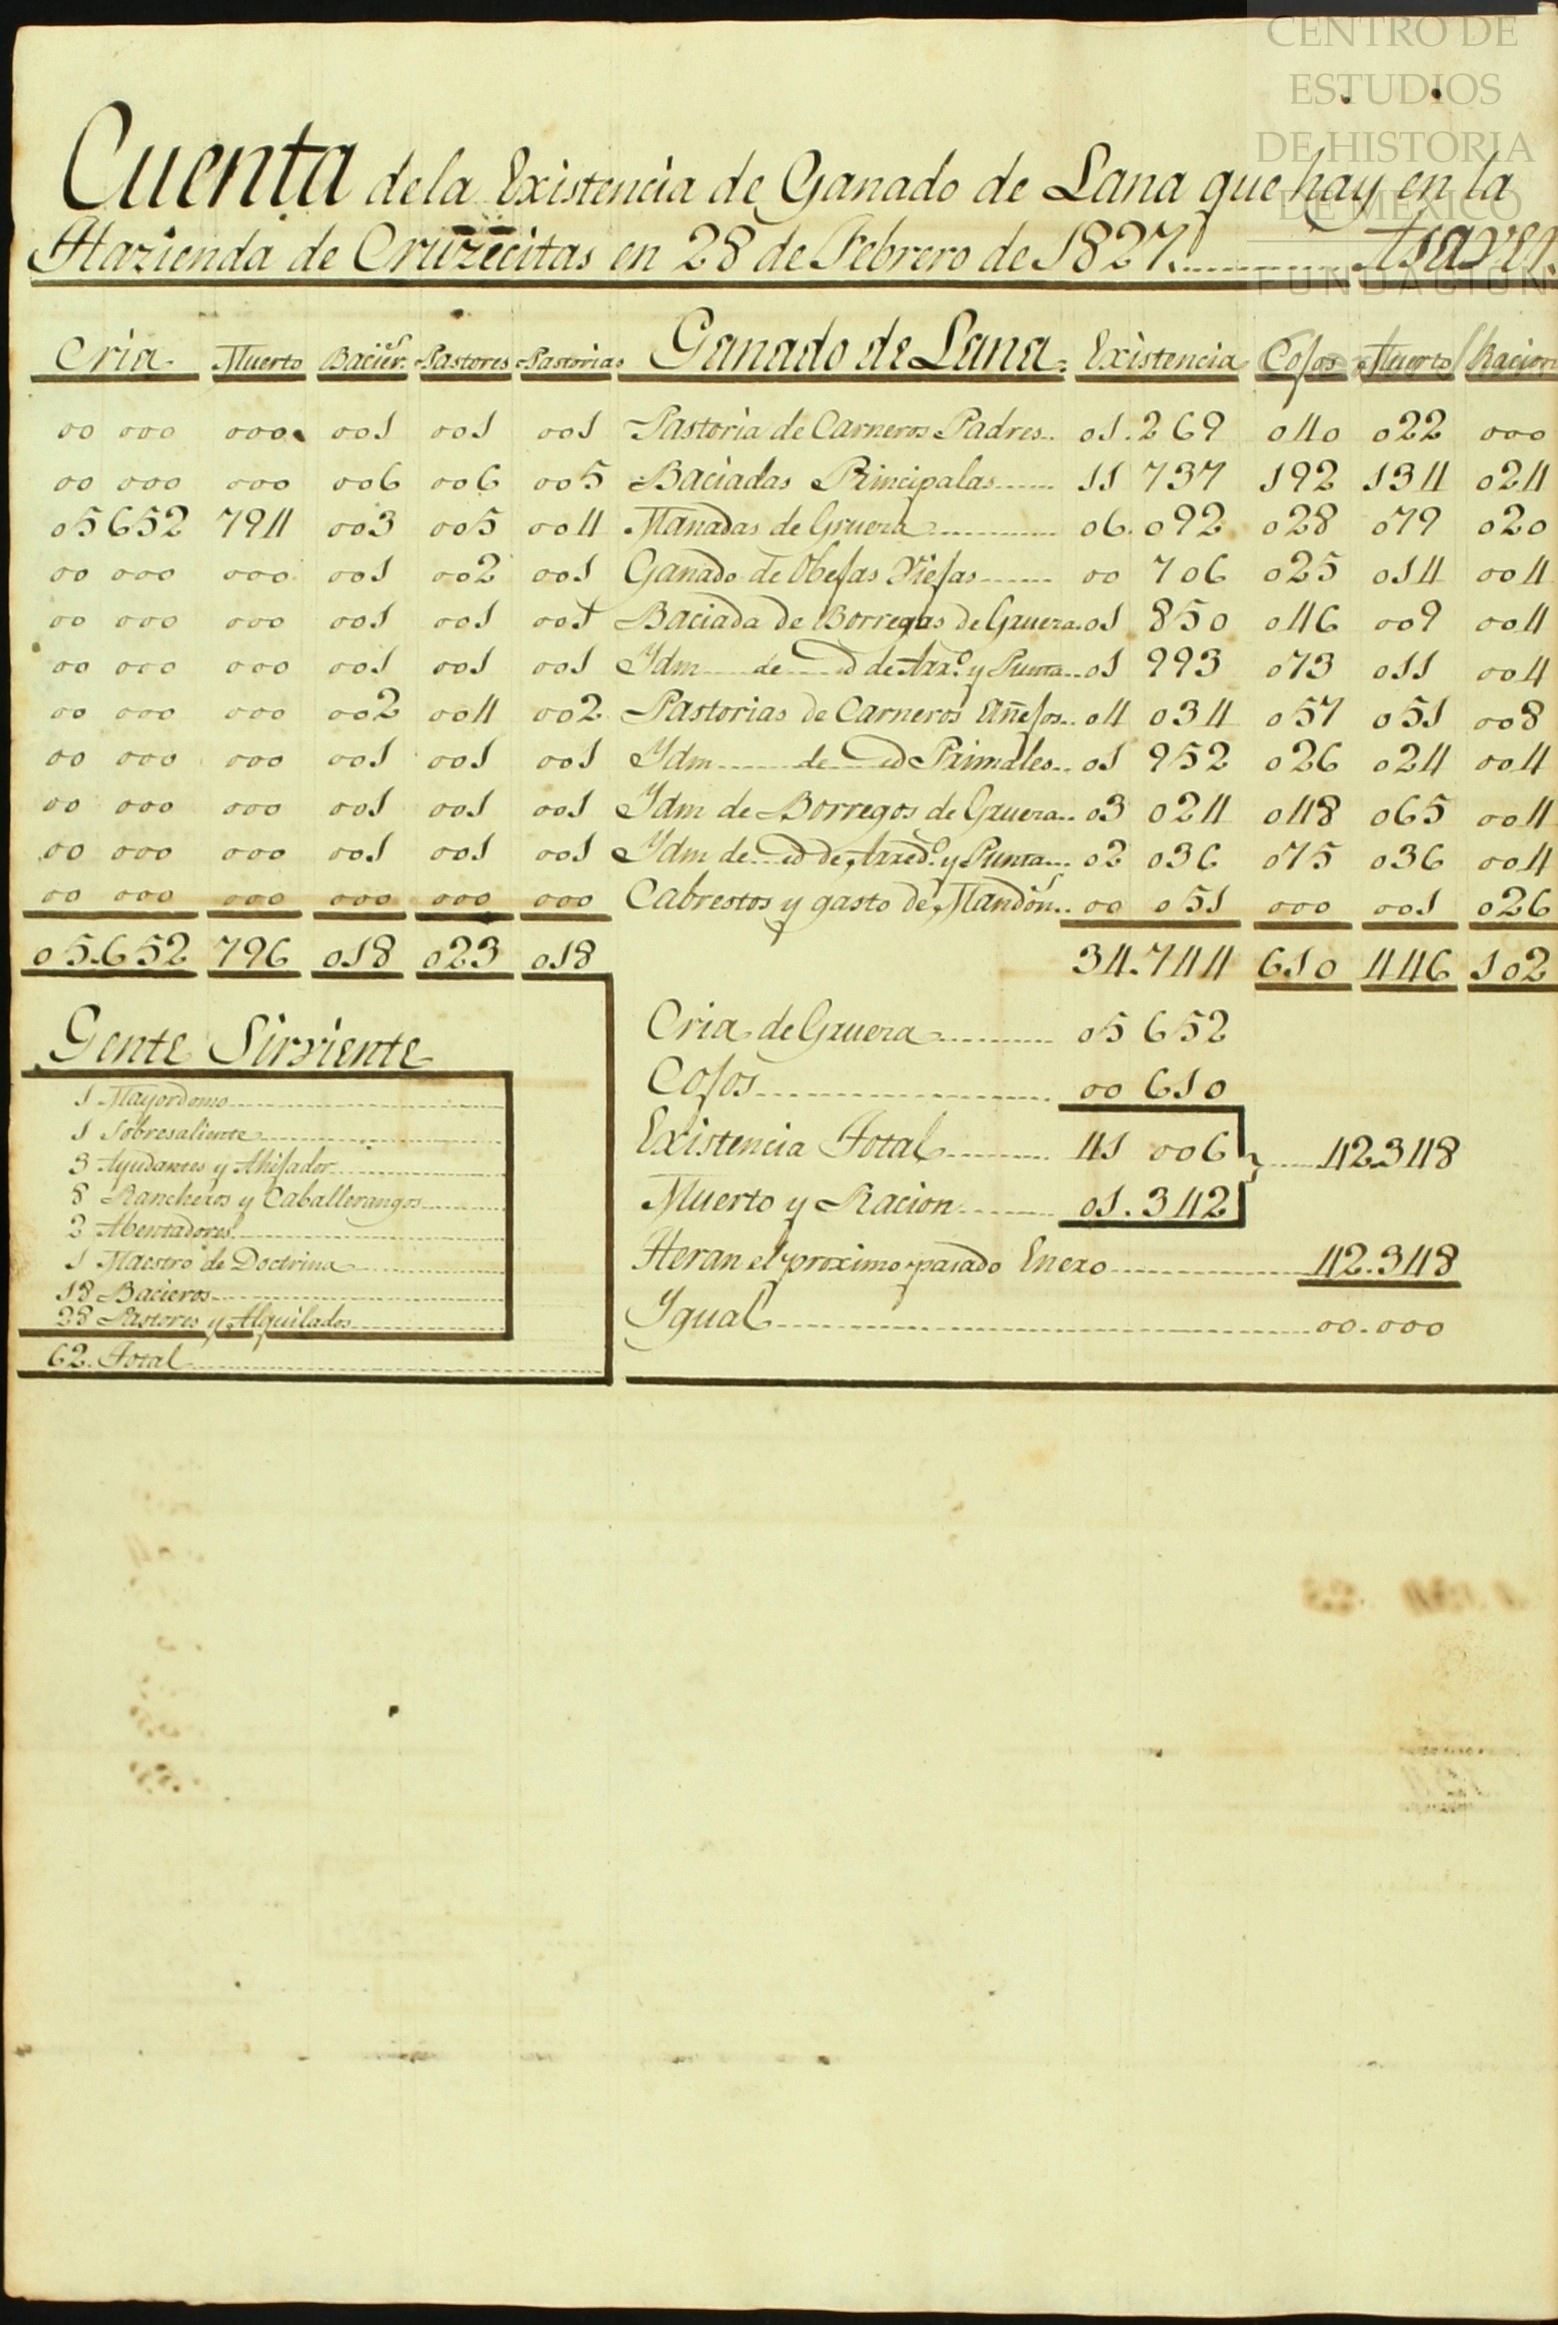 CENTRO DE
ESTUDIOS
DE HISTORIA
DE MEXICO
FUNDACION
Cuenta dela Existencia de Ganado de Lana que hay en la
Hazienda de Cruzecitas en 28 de Febrero de 1827. Asaver.
Cria Muerto Bacier.s Pastores Pastorias Ganado de Lana. Existencia Cojos Muerto Racion
00 000 000 001 001 001 Pastoria de Carneros Padres 01.269 040 022 000
00 000 000 006 006 005 Baciadas Principalas 11 737 192 134 024
05652 794 003 005 004 Manadas de Gruera 06.092 028 079 020
00 000 000 001 002 001 Ganado de Obejas Viejas 00 706 025 014 004
00 000 000 001 001 001 Baciada de Borregas de Gruera 01 850 046 009 004
00 000 000 001 001 001 Ydm de id de Arr.o y Punta 01 993 073 011 004
00 000 000 002 004 002 Pastorias de Carneros Añejos 04 034 057 051 008
00 000 000 001 001 001 Ydm de id Primales 01 952 026 024 004
00 000 000 001 001 001 Ydm de Borregos de Gruera 03 024 048 065 004
00 000 000 001 001 001 Ydm de id de Arred.o y Punta 02 036 075 036 004
00 000 000 000 000 000 Cabrestos y gasto de Mandon 00 051 000 001 026
05.652 796 018 023 018 34.744 610 446 102
Cria de Gruera 05 652
Cojos 00 610
Existencia Total 41 006 42348
Muerto y Racion 01.342
Heran el proximo pasado Enero 42.348
Ygual 00.000
Gente Sirviente
1 Mayordomo
1 Sobresaliente
3 Ayudantes y Ahijador
8 Rancheros y Caballerangos
2 Abentadores
1 Maestro de Doctrina
18 Bacieros
28 Pastores y Alquilados
62. Total